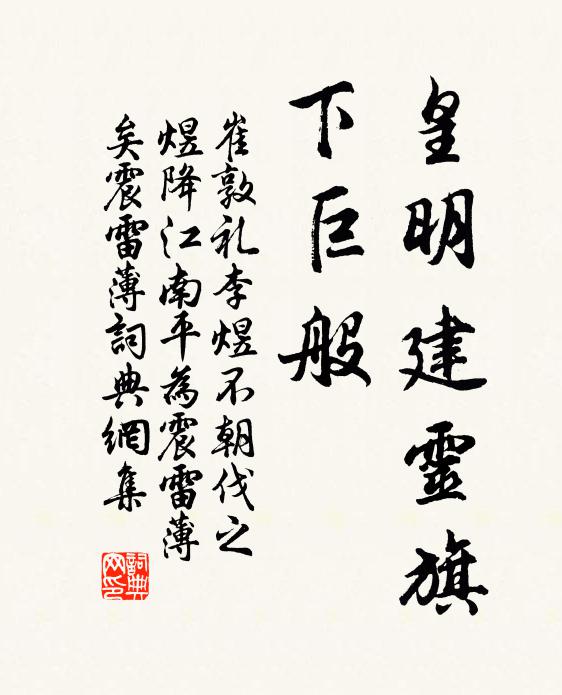 皇明建靈旗
下巨般
崔敦礼李煜不朝伐之
煜降江南平為震雷薄
矣震雷薄詞典網集
詞典網印